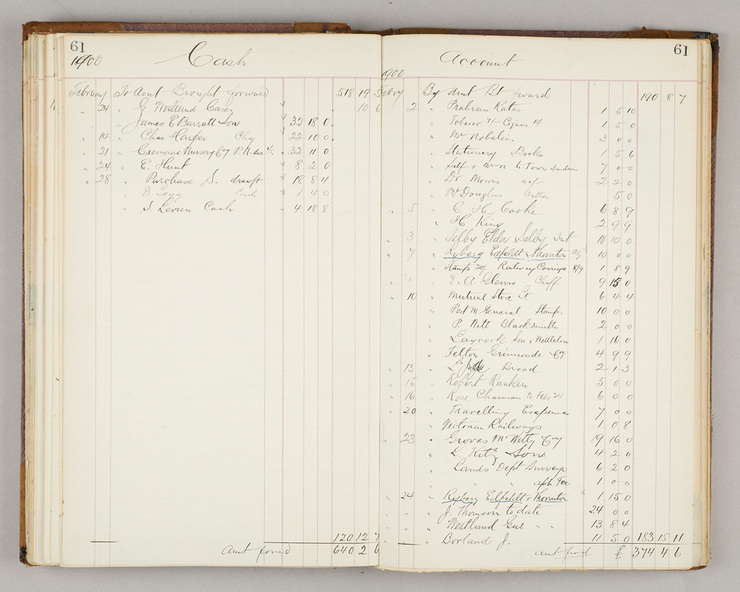 61
1900
Cash
February To Amt Brought forward 518 19
24 " G Westlund Cash 10 6
James E Barratt Son 32 18 0
14 " Chas Harper Coy 22 10 0
21 " Cremorne Nursery Coy 32 11 0
24 " E. Hunt " 8 2 0
28 " Purchase S. draft " 18 8 11
" Cash " 1 4 0
" S. Levien Cash " 4 18 8
120 12 7
Amt forwd 640 2 6
61
1900
Account
Feby By Amt Bt forward 190 8 7
2 " Prahran Rates 1 5 10
Tobacco Cigars 1 5 0
" Mr 3 0 0
" Stationary Books 1 5 6
" 7 0 0
" Dr Morris 2 2 0
" 5 0
5 " C. H. Cooke 6 8 9
" H. King 2 9 9
3 " Selby Elder Selby 10 10 0
7 " Edfeldt Thornton 10 0 0
" Stamps Railway Carriage 8/9 1 8 9
" E. A. Glenn Chaff 9 15 0
10 " Mutual Store 6 4 4
" Post M General Stamps 10 0 0
" P. Witt Blacksmith 2 0 0
" Laycock Son & Nettleton 1 16 0
" Felton Grimwade Coy 4 9 9
13 " Bread 2 1 3
15 " Robert Rankin 5 0 0
16 " Rose Charman to Feb 24 6 0 0
20 " Travelling Expenses 7 0 0
" Victorian Railways 1 0 8
23 " Groves McVitty Coy 19 16 0
" L. Kitz Sons 4 2 0
" Lands Dept Surveys 6 2 0
" " " 1 0 0
24 " Edfeldt & Thornton 1 15 0
" J. Thomson to date 24 0 0
" Westlund Gus " " 13 8 4
" Borland J. 11 5 0 183 15 11
Amt fwd £ 374 4 6